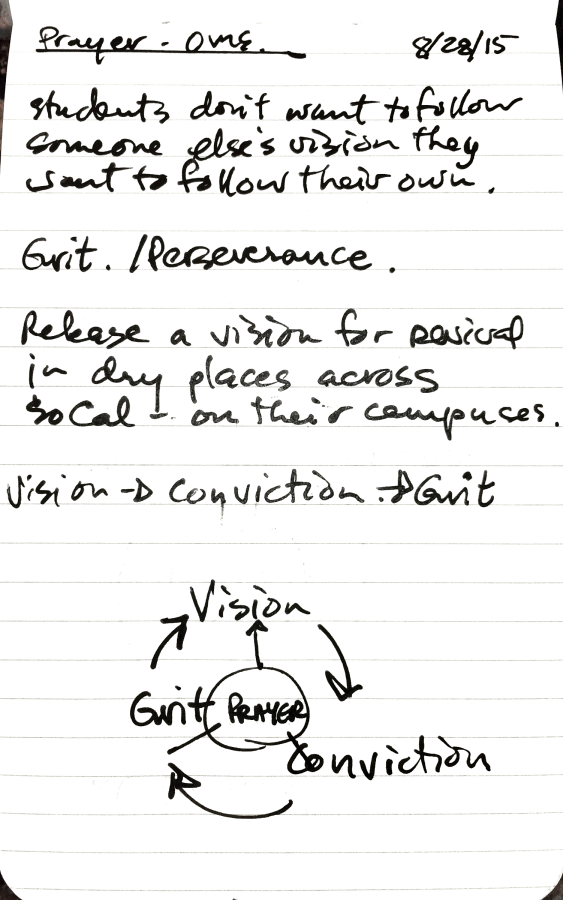 Prayer - OME. 8/28/15
students don't want to follow
someone else's vision they
want to follow their own.
Grit. /Perseverance.
Release a vision for revival
in dry places across
SoCal - on their campuses.
Vision → Conviction → Grit
Vision
Grit PRAYER
Conviction